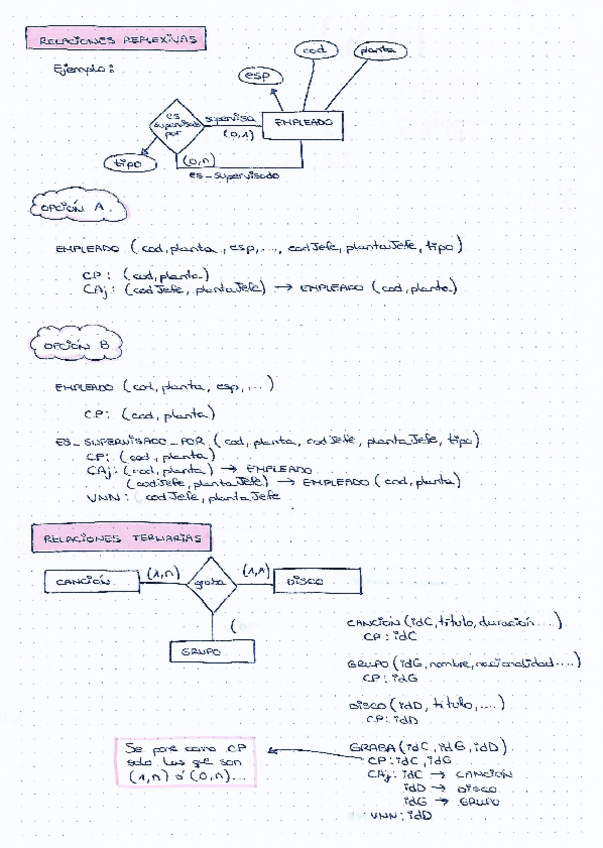 RELACIONES REFLEXIVAS
Ejemplo:
cod
planta
esp
es supervisado por
supervisa
(0,1)
EMPLEADO
tipo
(0,n)
es_supervisado
OPCIÓN A.
EMPLEADO (cod, planta, esp, ..., codJefe, plantaJefe, tipo)
CP: (cod, planta)
CAj: (codJefe, plantaJefe) → EMPLEADO (cod, planta)
OPCIÓN B
EMPLEADO (cod, planta, esp, ...)
CP: (cod, planta)
ES_SUPERVISADO_POR (cod, planta, codJefe, plantaJefe, tipo)
CP: (cod, planta)
CAj: (cod, planta) → EMPLEADO
(codJefe, plantaJefe) → EMPLEADO (cod, planta)
VNN: codJefe, plantaJefe
RELACIONES TERNARIAS
CANCIÓN
(1,n)
graba
(1,1)
DISCO
(
GRUPO
CANCIÓN (idC, título, duración...)
CP: idC
GRUPO (idG, nombre, nacionalidad....)
CP: idG
DISCO (idD, título, ....)
CP: idD
GRABA (idC, idG, idD)
CP: idC, idG
CAj: idC → CANCIÓN
idD → DISCO
idG → GRUPO
VNN: idD
Se pone como CP
solo las que son
(1,n) ó (0,n)...